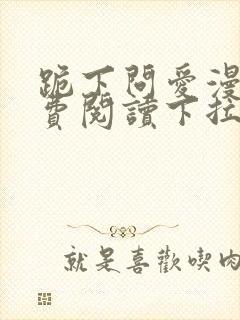 跪下問愛漫
費閱讀下拉
就是喜歡喫肉